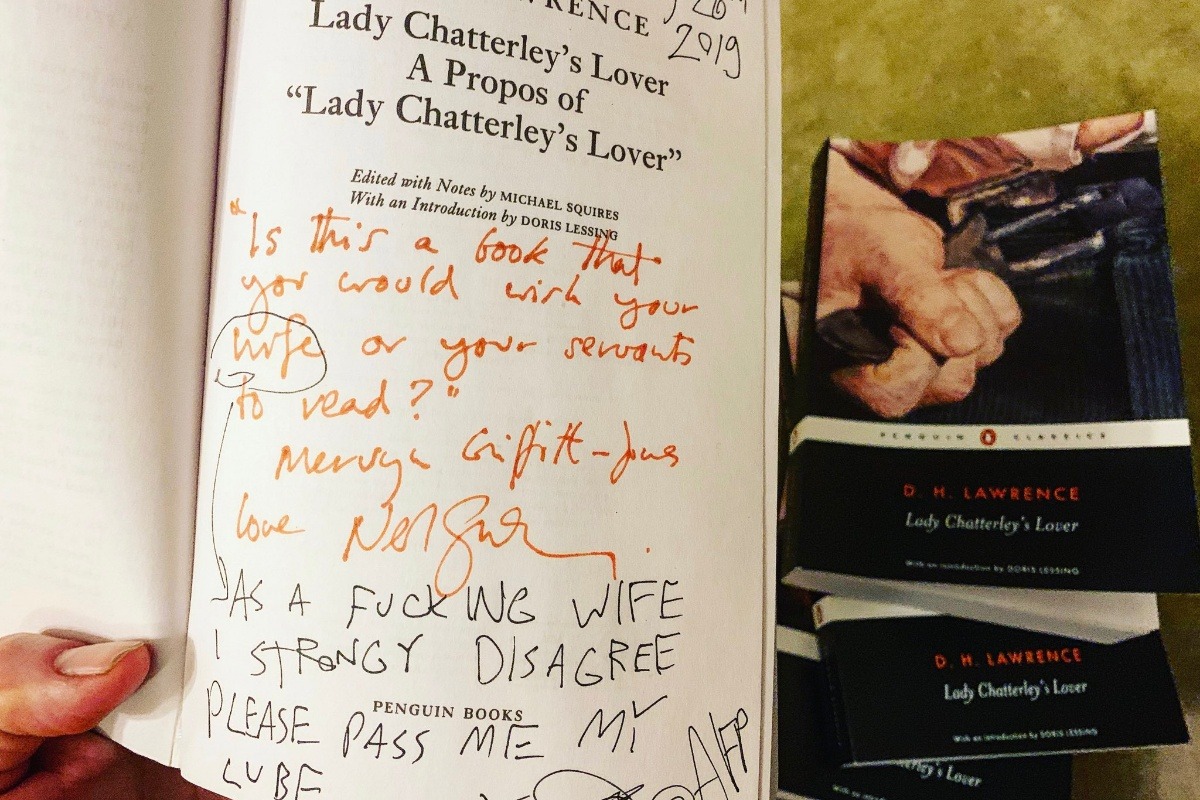 WRENCE
2019
Lady Chatterley's Lover
A Propos of
“Lady Chatterley's Lover”
Edited with Notes by MICHAEL SQUIRES
With an Introduction by DORIS LESSING
"Is this a book that
you would wish your
wife or your servants
to read?"
Mervyn Griffith-Jones
love Neil
AS A FUCKING WIFE
I STRONGY DISAGREE
PLEASE PASS ME MY
LUBE
PENGUIN BOOKS
AFP
PENGUIN CLASSICS
D. H. LAWRENCE
Lady Chatterley's Lover
With an introduction by DORIS LESSING
D. H. LAWRENCE
Lady Chatterley's Lover
With an introduction by DORIS LESSING
Lover
With an